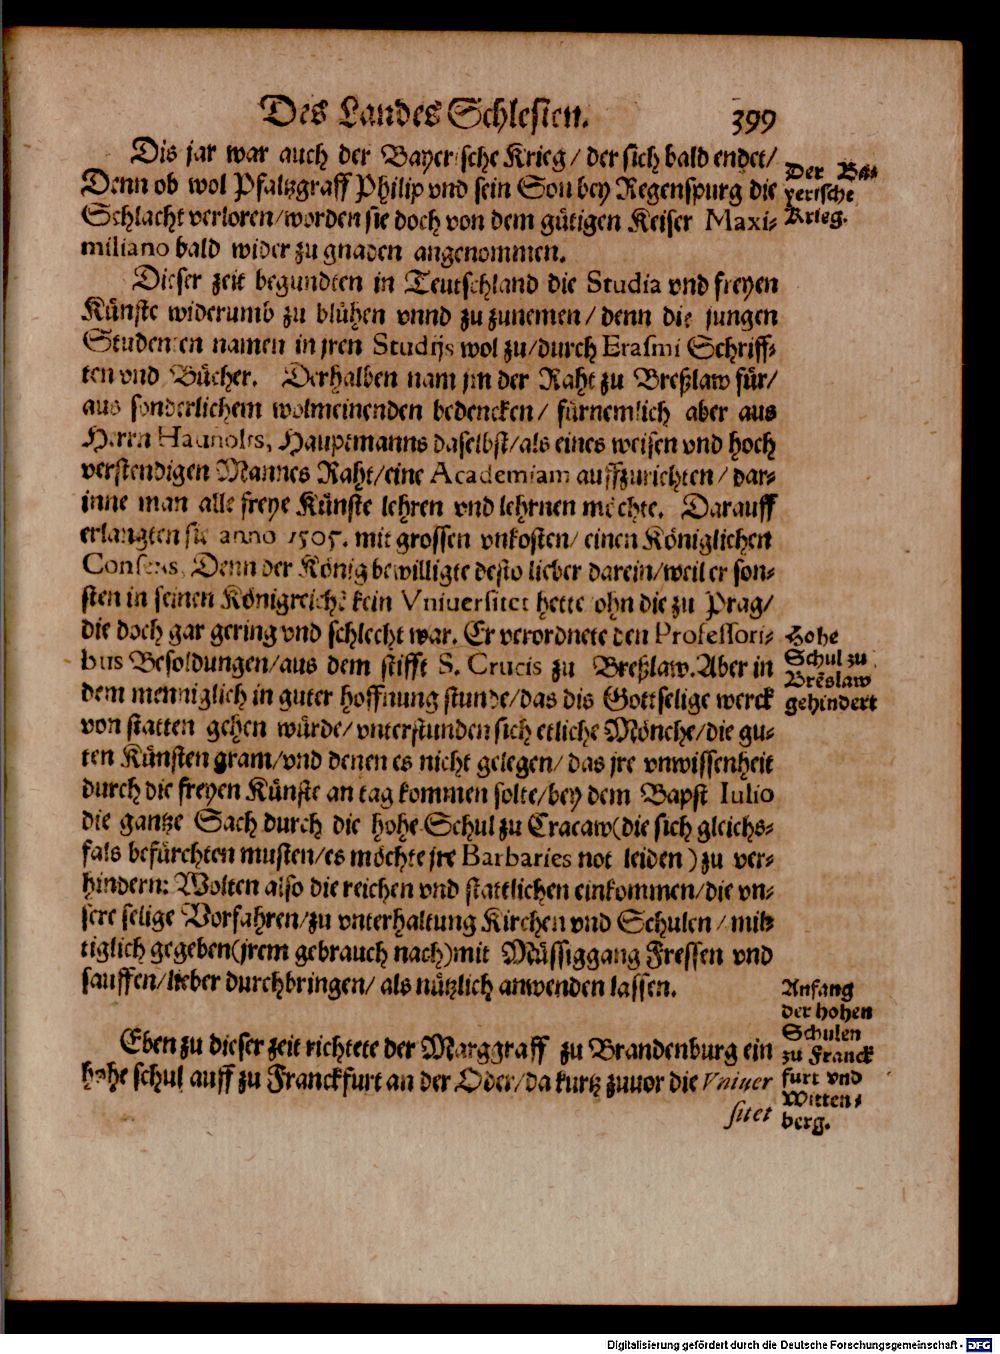 Des Landes Schlesien. 399
Dis jar war auch der Bayerische Krieg/ der sich bald endet/
Denn ob wol Pfaltzgraff Philip vnd sein Son bey Regenspurg die
Schlacht verloren/worden sie doch von dem gütigen Keiser Maxi-
miliano bald wider zu gnaden angenommen.
Der Ba-
yerische
Krieg.
Dieser zeit begundten in Teutschland die Studia vnd freyen
Künste widerumb zu blühen vnnd zu zunemen/ denn die jungen
Studenten namen in jren Studijs wol zu/durch Erasmi Schriff-
ten vnd Bücher. Derhalben nam jm der Raht zu Breßlaw für/
aus sonderlichem wolmeinenden bedencken/ fürnemlich aber aus
Herrn Haunolts, Hauptmanns daselbst/als eines weisen vnd hoch
verstendigen Mannes Raht/eine Academiam auffzurichten/ dar-
inne man alle freye Künste lehren vnd lehrnen möchte. Darauff
erlangten sie anno 1505. mit grossen vnkosten/ einen Königlichen
Consens. Denn der König bewilligte desto lieber darein/weil er son-
sten in seinen Königreiche kein Vniuersitet hette ohn die zu Prag/
die doch gar gering vnd schlecht war. Er verordnete den Professori-
bus Besoldungen/aus dem stifft S. Crucis zu Breßlaw. Aber in
dem menniglich in guter hoffnung stunde/das dis Gottselige werck
von statten gehen würde/ vnterstunden sich etliche Mönche/die gu-
ten Künsten gram/vnd denen es nicht gelegen/ das jre vnwissenheit
durch die freyen Künste an tag kommen solte/bey dem Bapst Iulio
die gantze Sach durch die hohe Schul zu Cracaw(die sich gleichs-
fals befürchten musten/es möchte jre Barbaries not leiden) zu ver-
hindern: Wolten also die reichen vnd stattlichen einkommen/die vn-
sere selige Vorfahren/zu vnterhaltung Kirchen vnd Schulen / mil-
tiglich gegeben(jrem gebrauch nach)mit Müssiggang Fressen vnd
sauffen/lieber durchbringen/ als nützlich anwenden lassen.
Hohe
Schul zu
Breslaw
gehindert
Eben zu dieser zeit richtete der Marggraff zu Brandenburg ein
hohe schul auff zu Franckfurt an der Oder/da kurtz zuuor die Vniuer
sitet
Anfang
der hohen
Schulen
zu Franck
furt vnd
Witten-
berg.
Digitalisierung gefördert durch die Deutsche Forschungsgemeinschaft - DFG